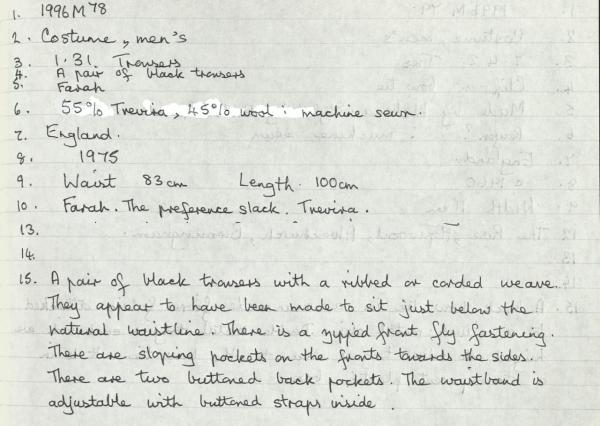 1. 1996 M 78
2. Costume, men's
3. 1.31. Trousers
4. A pair of black trousers
5. Farah
6. 55% Trevira, 45% wool : machine sewn.
7. England.
8. 1975
9. Waist 83cm Length. 100cm
10. Farah. The preference slack. Trevira.
13.
14.
15. A pair of black trousers with a ribbed or corded weave.
They appear to have been made to sit just below the
natural waistline. There is a zipped front fly fastening.
There are sloping pockets on the fronts towards the sides.
There are two buttoned back pockets. The waistband is
adjustable with buttoned straps inside.